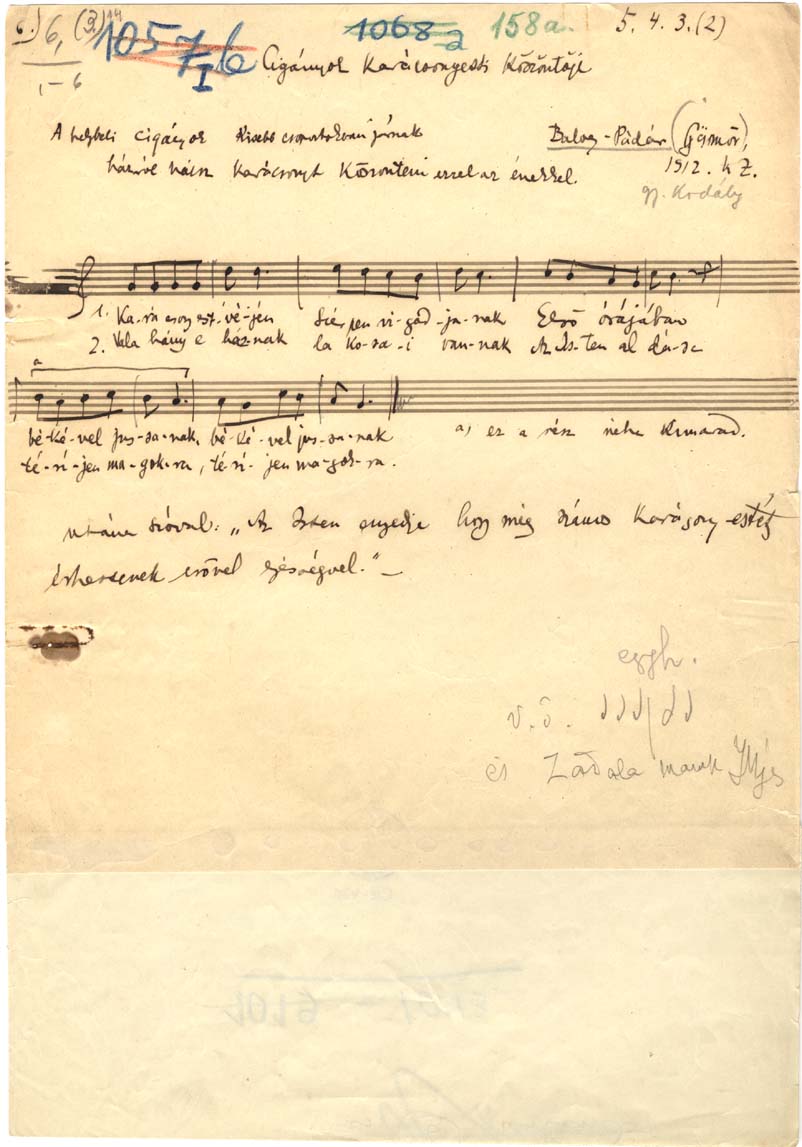 6.) 6, (3.) 14 1057/I b 1068 a 158a. 5. 4. 3. (2)
1-6
Cigányok Karácsonyesti Köszöntője
A helybeli cigányok kisebb csoportokban járnak
házról házra karácsonyt köszönteni ezzel az énekkel.
Balog-Pádár (Gömör),
1912. k Z.
gy. Kodály
1. Ka-rácsony est-vé-jén Szépen vi-gad-ja-nak Első órájában
2. Vala hány e ház-nak la ko-sa-i van-nak Az Is-ten al dá-sa
a
bé-ké-vel jus-sa-nak, bé-ké-vel jus-sa-nak a, ez a rész néha kimarad.
té-ri-jen ma-gok-ra, té-ri-jen ma-gok-ra.
utána szóval: „Az Isten engedje hogy még számos Karácsony estét
érhessenek erővel egésségvel." —
egyh.
v. ö.
és